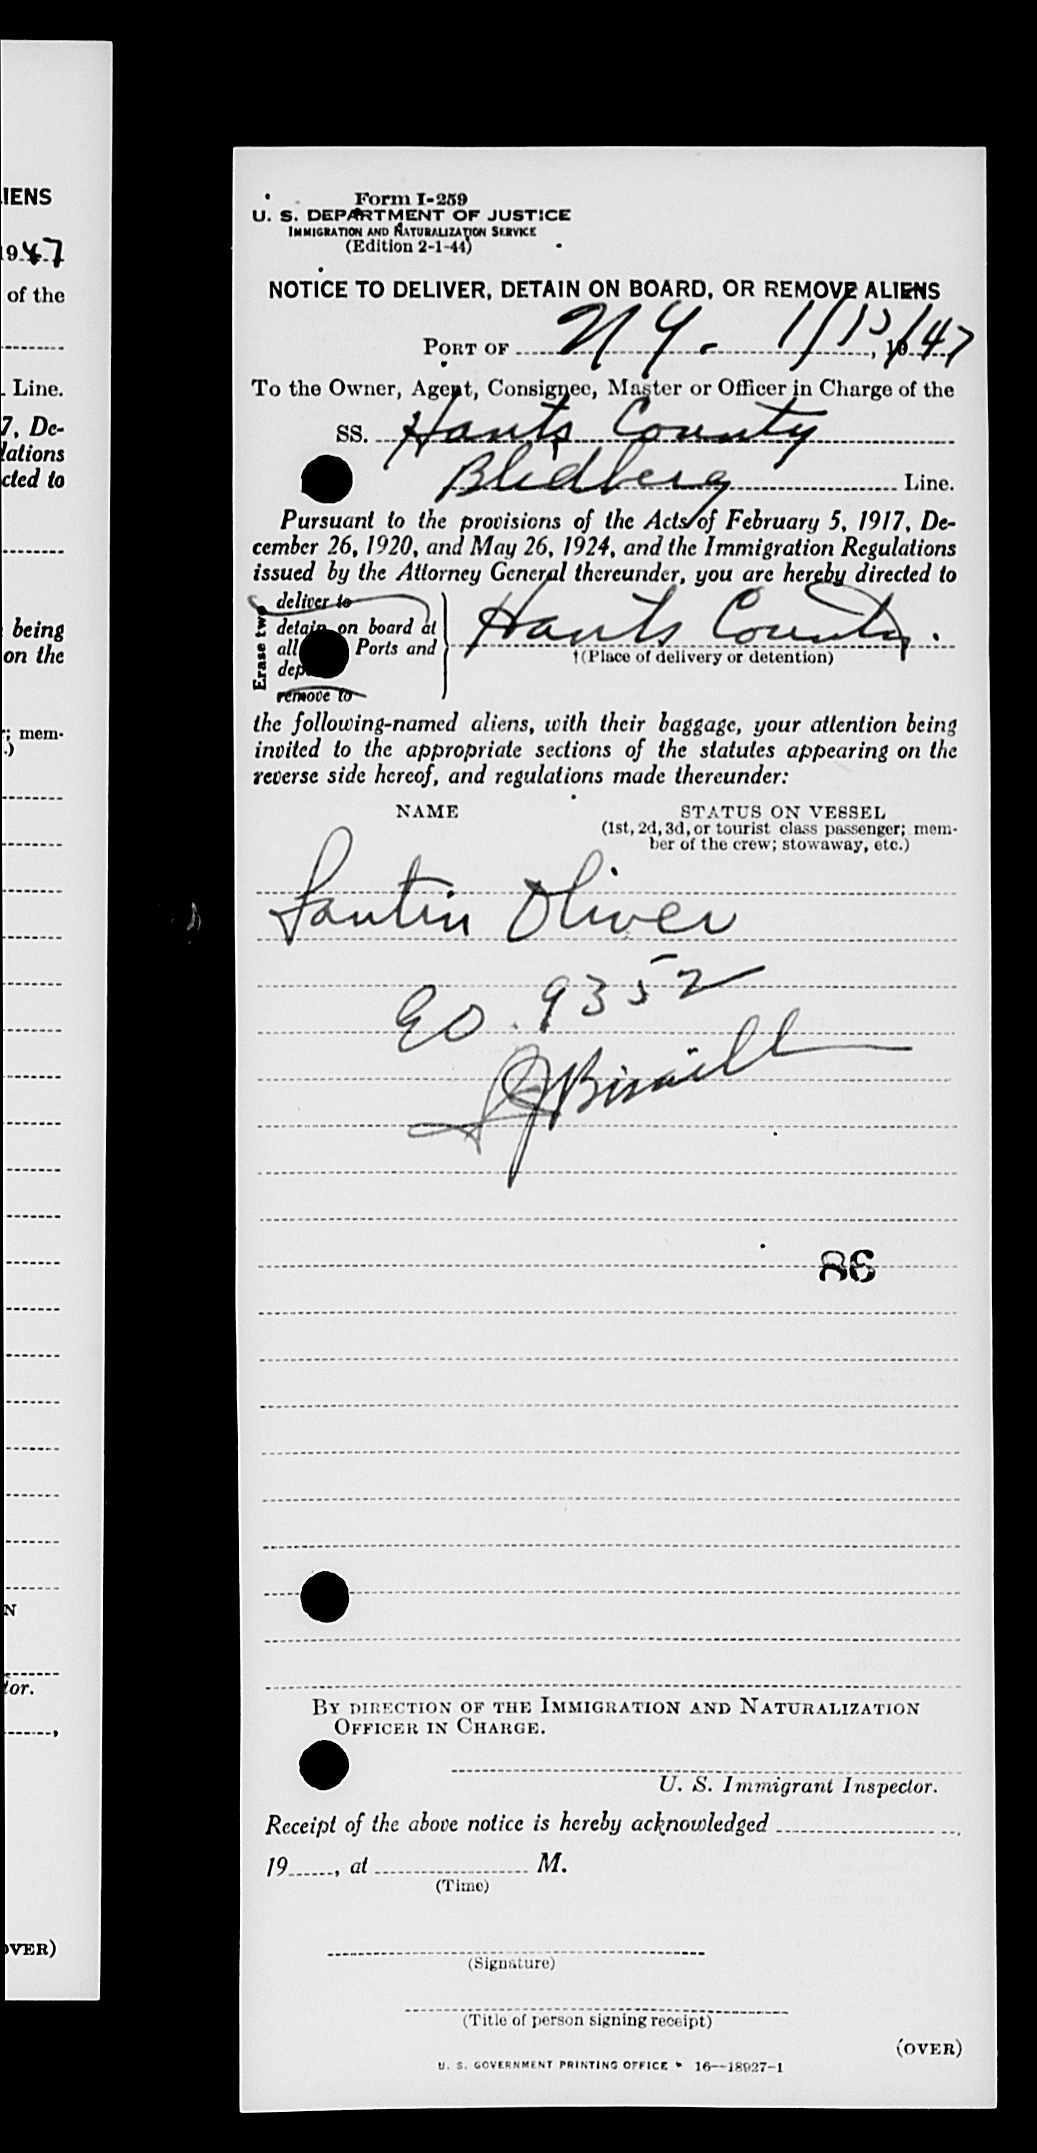 IENS
19 47
of the
Line.
7, De-
lations
cted to
being
on the
r; mem-
.)
N
tor.
OVER)
Form I-259
U. S. DEPARTMENT OF JUSTICE
IMMIGRATION AND NATURALIZATION SERVICE
(Edition 2-1-44)
NOTICE TO DELIVER, DETAIN ON BOARD, OR REMOVE ALIENS
PORT OF N Y. 1/13/47, 19
To the Owner, Agent, Consignee, Master or Officer in Charge of the
SS. Hants County
Blidberg Line.
Pursuant to the provisions of the Acts of February 5, 1917, De-
cember 26, 1920, and May 26, 1924, and the Immigration Regulations
issued by the Attorney General thereunder, you are hereby directed to
Erase two
deliver to
detain on board at
all Ports and
dep
remove to
Hants County.
†(Place of delivery or detention)
the following-named aliens, with their baggage, your attention being
invited to the appropriate sections of the statutes appearing on the
reverse side hereof, and regulations made thereunder:
NAME STATUS ON VESSEL
(1st, 2d, 3d, or tourist class passenger; mem-
ber of the crew; stowaway, etc.)
Santin Oliver
EO. 9352
86
BY DIRECTION OF THE IMMIGRATION AND NATURALIZATION
OFFICER IN CHARGE.
U. S. Immigrant Inspector.
Receipt of the above notice is hereby acknowledged
19, at M.
(Time)
(Signature)
(Title of person signing receipt)
(OVER)
U. S. GOVERNMENT PRINTING OFFICE 16—18927-1